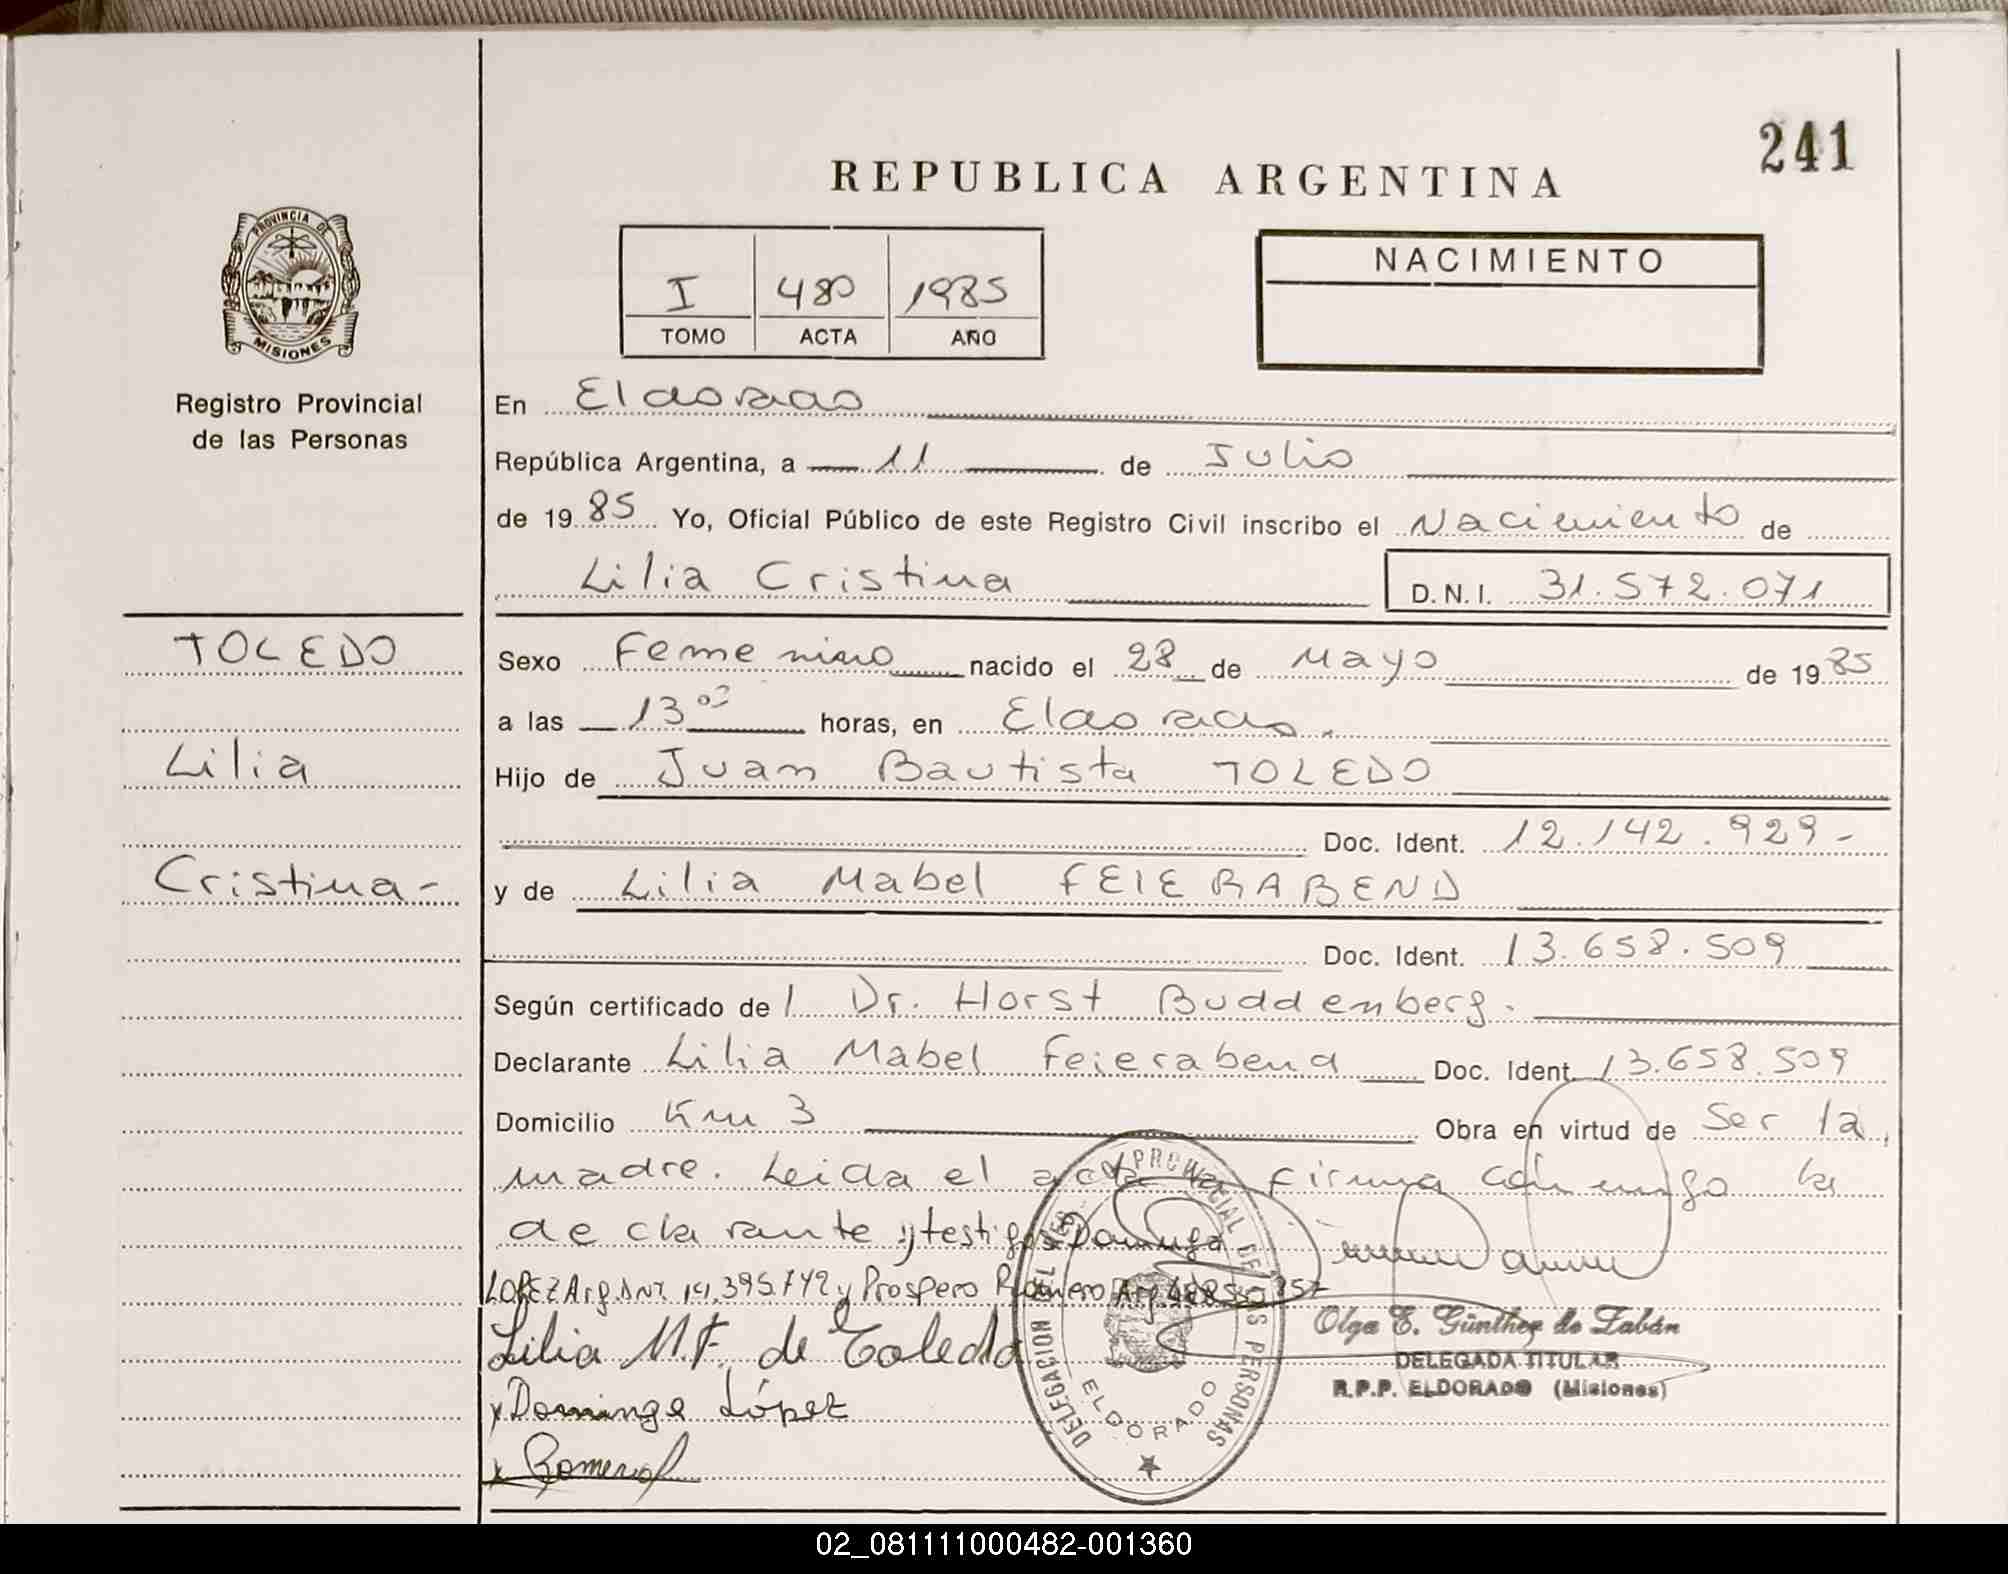 241
REPUBLICA ARGENTINA
PROVINCIA DE
MISIONES
Registro Provincial
de las Personas
I 480 1985
TOMO ACTA AÑO
NACIMIENTO
En Eldorado
República Argentina, a 11 de Julio
de 1985 Yo, Oficial Público de este Registro Civil inscribo el Nacimiento de
Lilia Cristina D.N.I. 31.572.071
TOLEDO
Lilia
Cristina-
Sexo Femenino nacido el 28 de Mayo de 1985
a las 13 horas, en Eldorado.
Hijo de Juan Bautista TOLEDO
Doc. Ident. 12.142.929-
y de Lilia Mabel FEIERABEND
Doc. Ident. 13.658.509
Según certificado de l Dr. Horst Buddenberg.
Declarante Lilia Mabel Feierabend Doc. Ident. 13.658.509
Domicilio Km 3 Obra en virtud de Ser la
madre. Leida el acta la firma conmigo la
declarante y testigos Dominga
LOPEZ Arg. DNI. 14.395.742 y Prospero Romero Arg.
Lilia M.F. de Toledo
x Dominga López
x Romero
DELEGACION DEL REG. PROVINCIAL DE LAS PERSONAS
ELDORADO
Olga E. Günther de Zabán
DELEGADA TITULAR
R.P.P. ELDORADO (Misiones)
02_081111000482-001360